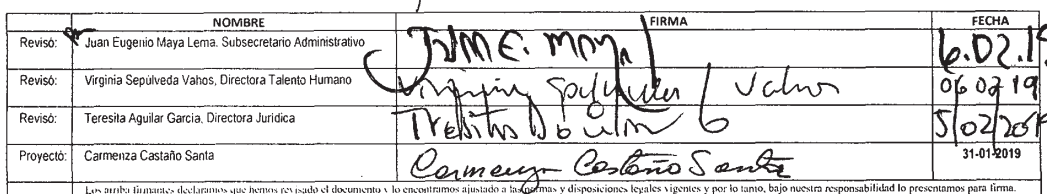 NOMBRE FIRMA FECHA
Revisó: Juan Eugenio Maya Lema. Subsecretario Administrativo 6.02.19
Revisó: Virginia Sepúlveda Vahos, Directora Talento Humano Virginia Sepulveda Vahos 06 02 19
Revisó: Teresita Aguilar Garcia, Directora Jurídica Teresita Aguilar 5/02/2019
Proyectó: Carmenza Castaño Santa Carmenza Castaño Santa 31-01-2019
Los arriba firmantes declaramos que hemos revisado el documento y lo encontramos ajustado a las normas y disposiciones legales vigentes y por lo tanto, bajo nuestra responsabilidad lo presentamos para firma.